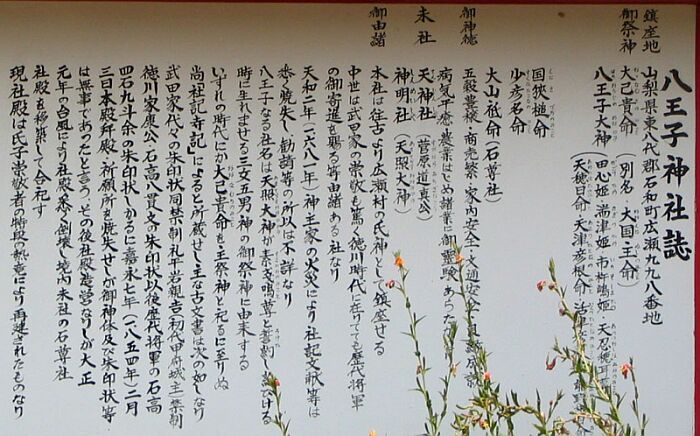 八王子神社誌
鎮座地 山梨県東八代郡石和町広瀬九九八番地
御祭神 大己貴命(別名、大国主命)
八王子大神(田心姫 湍津姫 市杵嶋姫 天忍穂耳
(天穂日命 天津彦根命 活津
国狭槌命
少彦名命
大山祇命(石尊社)
御神徳 五穀豊穣、商売繁栄、家内安全、交通安全
病気平癒、農業はじめ諸業に御霊験あらた
末社 天神社(菅原道真公)
神明社(天照大神)
御由緒 本社は往古より広瀬村の氏神として鎮座せる
中世は武田家の崇敬も篤く徳川時代に在りても歴代将軍
の御寄進を賜る等由緒ある社なり
天和二年(一六八二年)神主家の火災により社記文献等は
悉く焼失し勧請等の所以は不詳なり
八王子なる社名は天照大神が素戔嗚尊と誓約し給ひける
時に生れませる三女五男神の御祭神に由来する
いずれの時代にか大己貴命を主祭神と祀るに至りぬ
尚社記「寺記」によると所蔵せし主な古文書は次の如くなり
武田家代々の朱印状同禁制札平岩親吉(初代甲府城主)禁制
徳川家康公、石高八貫文の朱印状以後歴代将軍の石高
四石九斗余の朱印状しかるに嘉永七年(一八五四年)二月
三日本殿拝殿、祈願所を焼失せしが御神体及び朱印状等
は無事であったと言う、その後社殿造営なりしが大正
元年の台風により社殿悉く倒壊し境内末社の石尊社
社殿を移築して合祀す
現社殿は氏子崇敬者の特段の熱意により再建されたものなり